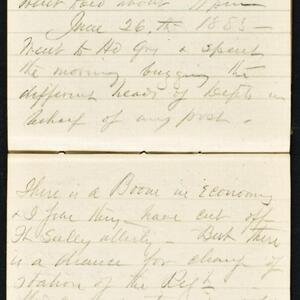 went bed about 11 pm
June 26.th 1885 -
Went to Hd Qrs & spent
the morning bugging the
different heads of Depts in
behalf of my post -
There is a Boom in "economy
& I fear they have cut off
Ft Selley utterly - But there
is a chance for change of
station of the Regt -